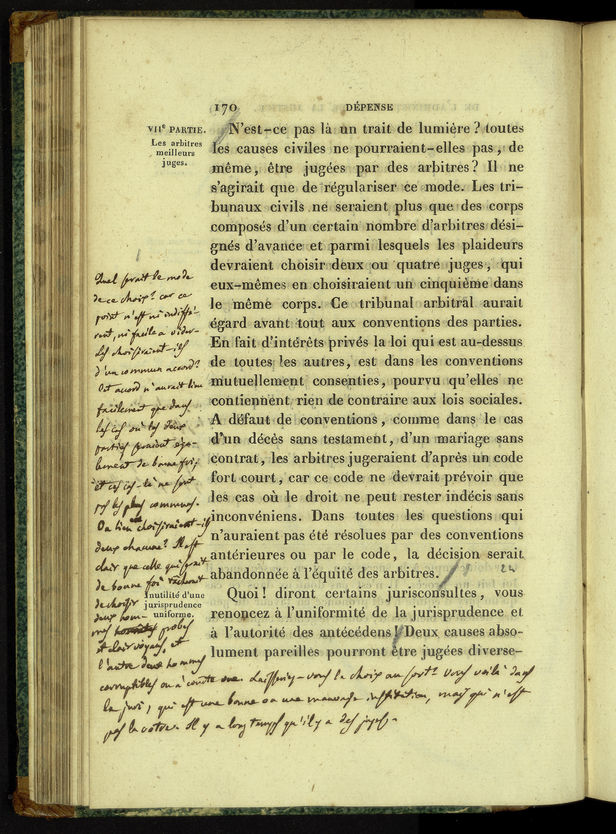 170 DÉPENSE
VIIe PARTIE.
Les arbitres
meilleurs
juges.
N'est-ce pas là un trait de lumière? toutes
les causes civiles ne pourraient-elles pas, de
même, être jugées par des arbitres? Il ne
s'agirait que de régulariser ce mode. Les tri-
bunaux civils ne seraient plus que des corps
composés d'un certain nombre d'arbitres dési-
gnés d'avance et parmi lesquels les plaideurs
devraient choisir deux ou quatre juges, qui
eux-mêmes en choisiraient un cinquième dans
le même corps. Ce tribunal arbitral aurait
égard avant tout aux conventions des parties.
En fait d'intérêts privés la loi qui est au-dessus
de toutes les autres, est dans les conventions
mutuellement consenties, pourvu qu'elles ne
contiennent rien de contraire aux lois sociales.
A défaut de conventions, comme dans le cas
d'un décès sans testament, d'un mariage sans
contrat, les arbitres jugeraient d'après un code
fort court, car ce code ne devrait prévoir que
les cas où le droit ne peut rester indécis sans
inconvéniens. Dans toutes les questions qui
n'auraient pas été résolues par des conventions
antérieures ou par le code, la décision serait
abandonnée à l'équité des arbitres.
Inutilité d'une
jurisprudence
uniforme.
Quoi! diront certains jurisconsultes, vous
renoncez à l'uniformité de la jurisprudence et
à l'autorité des antécédens! Deux causes abso-
lument pareilles pourront être jugées diverse-
Quel serait le mode
de ce choix? car ce
point n'est ni indiffé-
rent, ni facile a
Les choisiraient-ils
d'un commun accord?
Cet accord n'aurait lieu
facilement que dans
les cas où les deux
parties seraient éga-
lement de bonne foi;
et ces cas-là ne sont
pas les plus communs.
Ou bien en choisiraient-ils
deux chacune? Il est
clair que celle qui serait
de bonne foi
de choisir
deux hom-
mes probes
et clairvoyans, et
l'autre deux hommes
corruptibles ou à Laisseriez-vous le choix au sort? vous voilà dans
le jury, qui est une bonne ou une mauvaise institution, mais qui n'est
pas la votre. Il y a long temps qu'il y a des jurys.